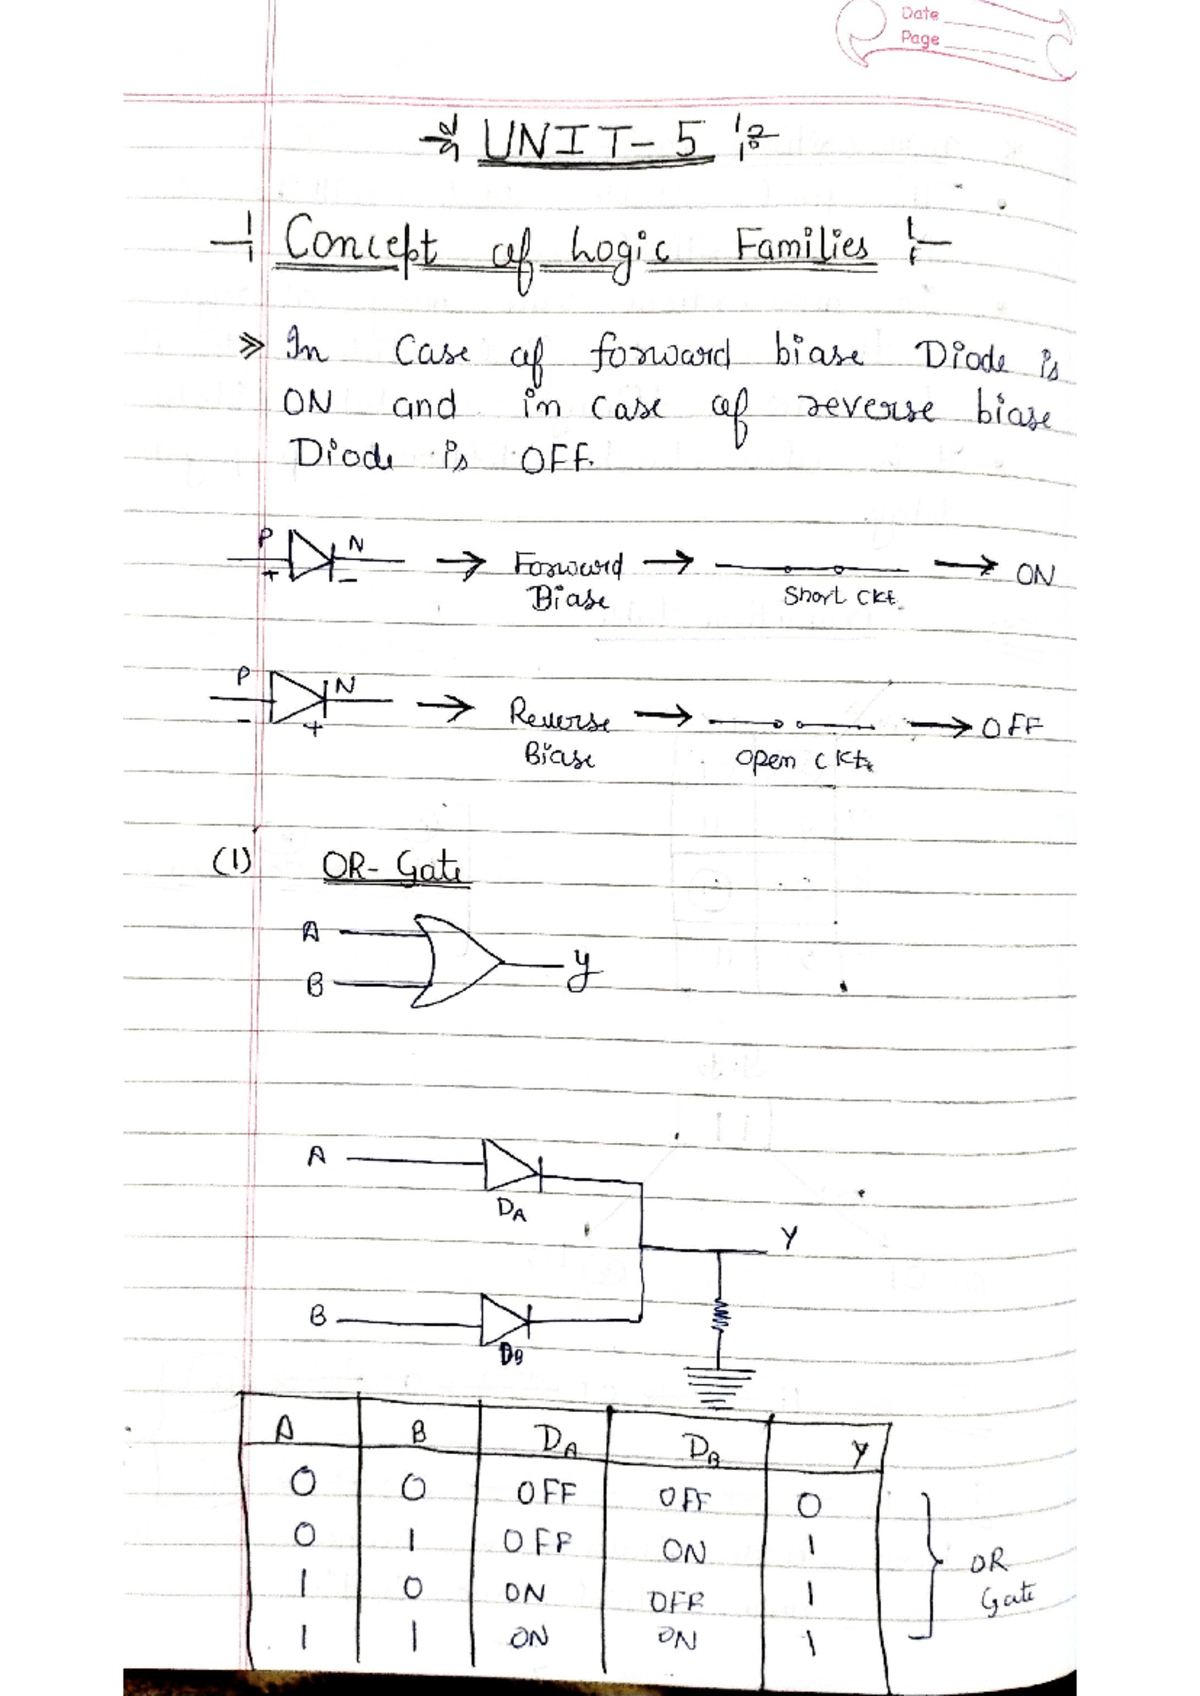 Date
Page
UNIT-5
Concept of Logic Families
In Case of forward biase Diode is
ON and in case of reverse biase
Diode is OFF.
P N → Forward → → ON
+ - Biase Short Ckt.
P N → Reverse → → OFF
- + Biase open ckt.
(1) OR-Gate
A
y
B
A
DA
Y
B
DB
A B DA DB Y
0 0 OFF OFF 0
0 1 OFF ON 1
1 0 ON OFF 1
1 1 ON ON 1
OR
Gate